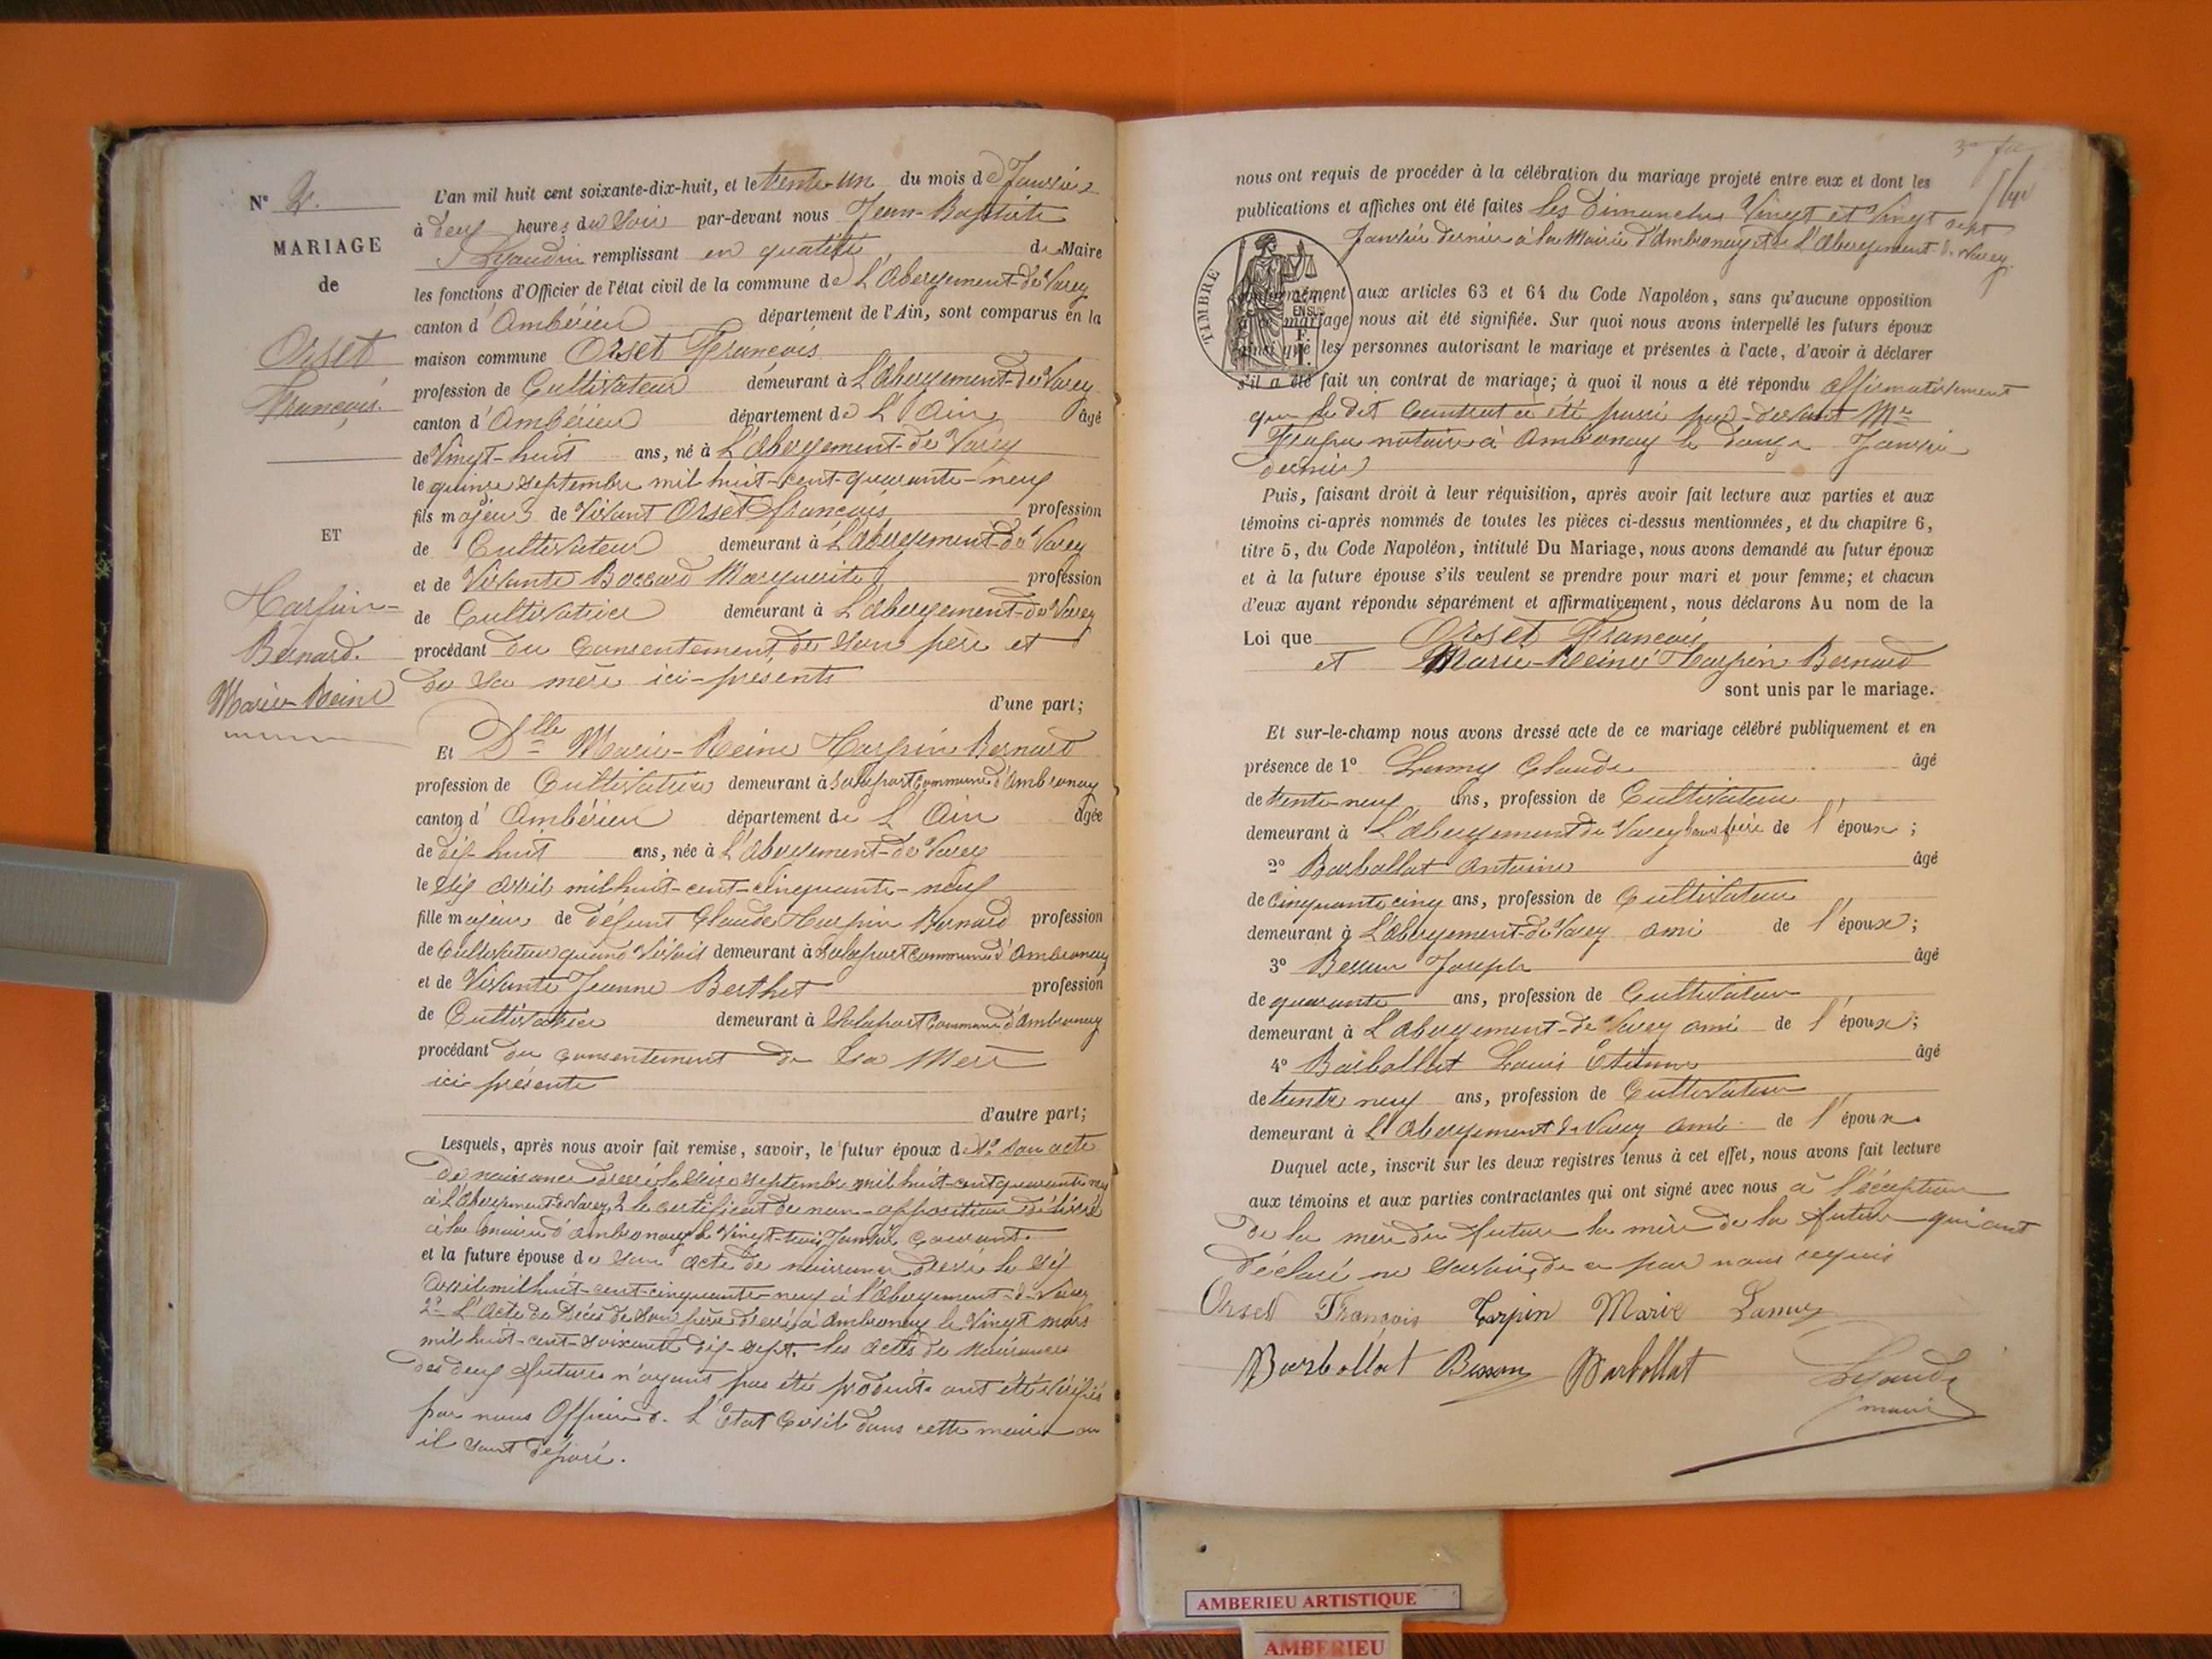 N° 2.
MARIAGE
de
Orset
François.
ET
Harpin-
Bernard.
Marie-Reine
L'an mil huit cent soixante-dix-huit, et le trente-un du mois de Janvier
à deux heures du Soir par-devant nous Jean-Baptiste
remplissant en qualité de Maire
les fonctions d'Officier de l'état civil de la commune de L'Abergement-de-Varey
canton d'Ambérieu département de l'Ain, sont comparus en la
maison commune Orset François
profession de Cultivateur demeurant à L'Abergement-de-Varey
canton d'Ambérieu département de L'Ain âgé
de Vingt-huit ans, né à L'Abergement-de-Varey
le quinze septembre mil huit-cent-quarante-neuf
fils majeur de vivant Orset François profession
de Cultivateur demeurant à L'Abergement-de-Varey
et de Vivante Boccard Marguerite profession
de Cultivatrice demeurant à L'Abergement-de-Varey
procédant du Consentement de Son père et
de Sa mère ici-présents
d'une part;
Et Dlle Marie-Reine Harpin Bernard
profession de Cultivatrice demeurant à Salaport Commune d'Ambronay
canton d'Ambérieu département de L'Ain âgée
de dix-huit ans, née à L'Abergement-de-Varey
le Six avril mil huit-cent-cinquante-neuf
fille majeure de défunt Claude Harpin Bernard profession
de Cultivateur quand vivait demeurant à Salaport Commune d'Ambronay
et de Vivante Jeanne Berthet profession
de Cultivatrice demeurant à Salaport Commune d'Ambronay
procédant du consentement de Sa Mère
ici présente
d'autre part;
Lesquels, après nous avoir fait remise, savoir, le futur époux de 1° Son acte
de naissance dressé le Seize septembre mil huit-cent quarante neuf
à L'Abergement-de-Varey, 2° le certificat de non-opposition délivré
à la mairie d'Ambronay le Vingt-trois Janvier Courant.
et la future épouse de Son acte de naissance dressé le Six
avril mil huit-cent-cinquante-neuf à L'Abergement-de-Varey
2° L'acte de Décès de Son père dressé à Ambronay le Vingt mars
mil huit-cent-soixante dix-sept. les actes de naissances
des deux futurs n'ayant pas été produits ont été vérifiés
par nous Officier de L'État Civil dans cette mairie ou
il sont déposé.
nous ont requis de procéder à la célébration du mariage projeté entre eux et dont les
publications et affiches ont été faites Les Dimanches Vingt et Vingt sept
Janvier dernier à la Mairie d'Ambronay et de L'Abergement-de-Varey
TIMBRE
conformément aux articles 63 et 64 du Code Napoléon, sans qu'aucune opposition
à ce mariage nous ait été signifiée. Sur quoi nous avons interpellé les futurs époux
ainsi que les personnes autorisant le mariage et présentes à l'acte, d'avoir à déclarer
s'il a été fait un contrat de mariage; à quoi il nous a été répondu affirmativement
que le dit Contrat a été passé par-devant Me
notaire à Ambronay le douze Janvier
dernier
Puis, faisant droit à leur réquisition, après avoir fait lecture aux parties et aux
témoins ci-après nommés de toutes les pièces ci-dessus mentionnées, et du chapitre 6,
titre 5, du Code Napoléon, intitulé Du Mariage, nous avons demandé au futur époux
et à la future épouse s'ils veulent se prendre pour mari et pour femme; et chacun
d'eux ayant répondu séparément et affirmativement, nous déclarons Au nom de la
Loi que Orset François
et Marie-Reine Harpin Bernard
sont unis par le mariage.
Et sur-le-champ nous avons dressé acte de ce mariage célébré publiquement et en
présence de 1° Lamy Claude âgé
de trente-neuf ans, profession de Cultivateur
demeurant à L'Abergement de Varey beau frère de l'époux;
2° Barbollat Antoine âgé
de Cinquante cinq ans, profession de Cultivateur
demeurant à L'Abergement-de-Varey ami de l'époux;
3° Besson Joseph âgé
de quarante ans, profession de Cultivateur
demeurant à L'Abergement-de-Varey ami de l'époux;
4° Barbollat Louis Etienne âgé
de trente neuf ans, profession de Cultivateur
demeurant à L'Abergement de Varey ami de l'époux.
Duquel acte, inscrit sur les deux registres tenus à cet effet, nous avons fait lecture
aux témoins et aux parties contractantes qui ont signé avec nous à l'éception
de la mère du futur la mère de la future qui ont
déclaré ne savoir, de ce par nous requis
Orset François Tarpin Marie Lamy
Barbollat Besson Barbollat
maire
AMBERIEU ARTISTIQUE
AMBERIEU